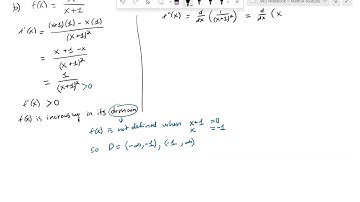 b) f(x) = x / x+1
f'(x) = (x+1)(1) - x(1) / (x+1)²
= x+1-x / (x+1)²
= 1 / (x+1)² >0
f'(x) >0
f(x) is increasing in its domain
f(x) is not defined when x+1 =0
x =-1
so D = (-∞,-1), (-1, ∞)
f''(x) = d/dx (1 / (x+1)²) = d/dx (x